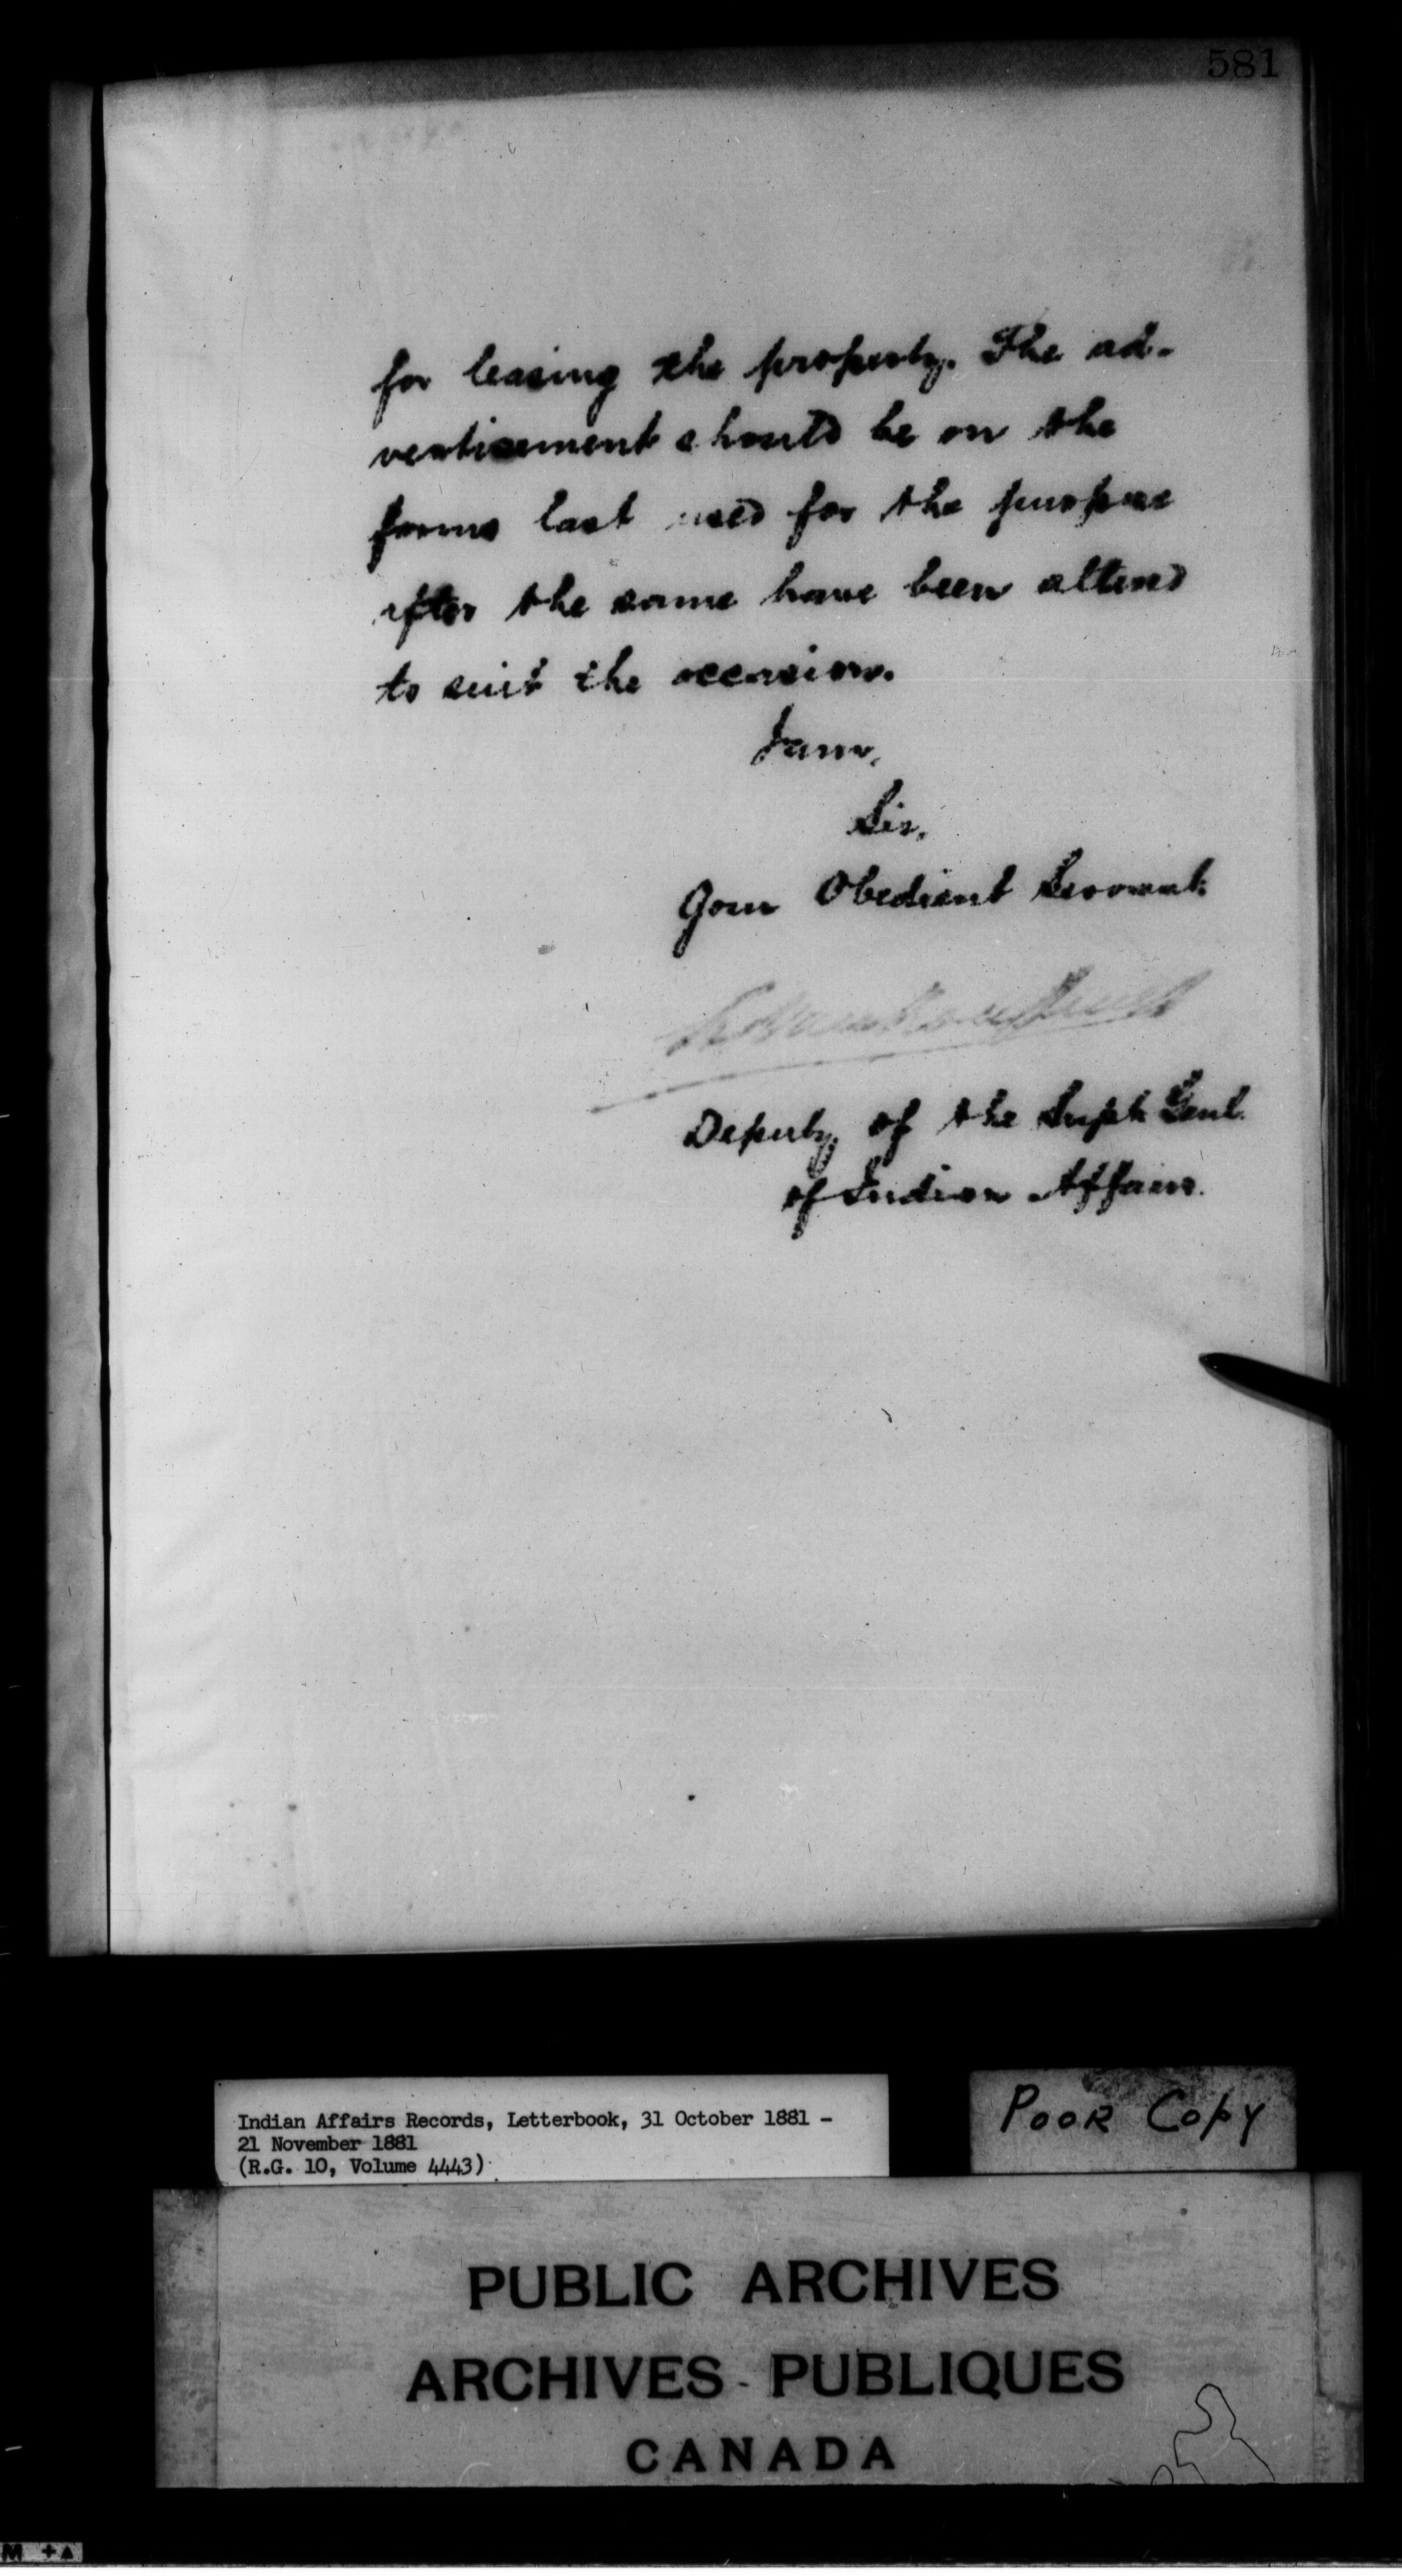 581
for leasing the property. The ad-
vertisement should be on the
forms last used for the purpose
after the same have been altered
to suit the occasion.
I am,
Sir,
Your Obedient Servant
Deputy of the Supt. Genl.
of Indian Affairs.
Indian Affairs Records, Letterbook, 31 October 1881 -
21 November 1881
(R.G. 10, Volume 4443)
POOR COPY
PUBLIC ARCHIVES
ARCHIVES - PUBLIQUES
CANADA